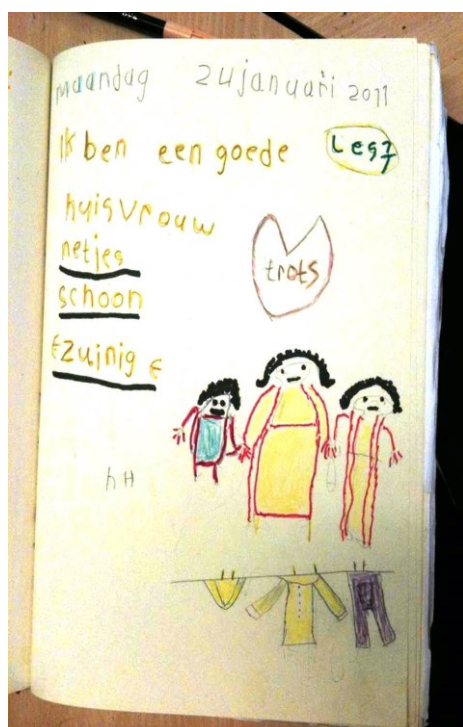 maandag 24 januari 2011
Ik ben een goede
Les 7
huisvrouw
trots
netjes
schoon
€ zuinig €
hH